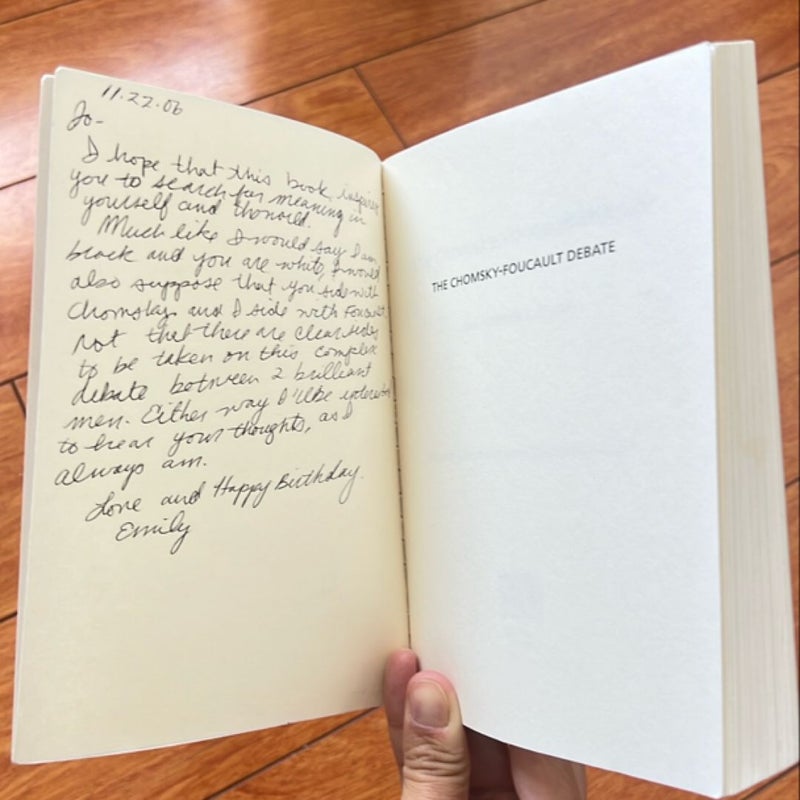 11.22.06
Jo-
I hope that this book inspires
you to search for meaning in
yourself and the world.
Much like I would say I am
black and you are white, I would
also suppose that you side with
Chomsky and I side with Foucault
not that there are clear sides
to be taken on this complex
debate between 2 brilliant
men. Either way I'll be interested
to hear your thoughts, as I
always am.
Love and Happy Birthday.
Emily
THE CHOMSKY-FOUCAULT DEBATE